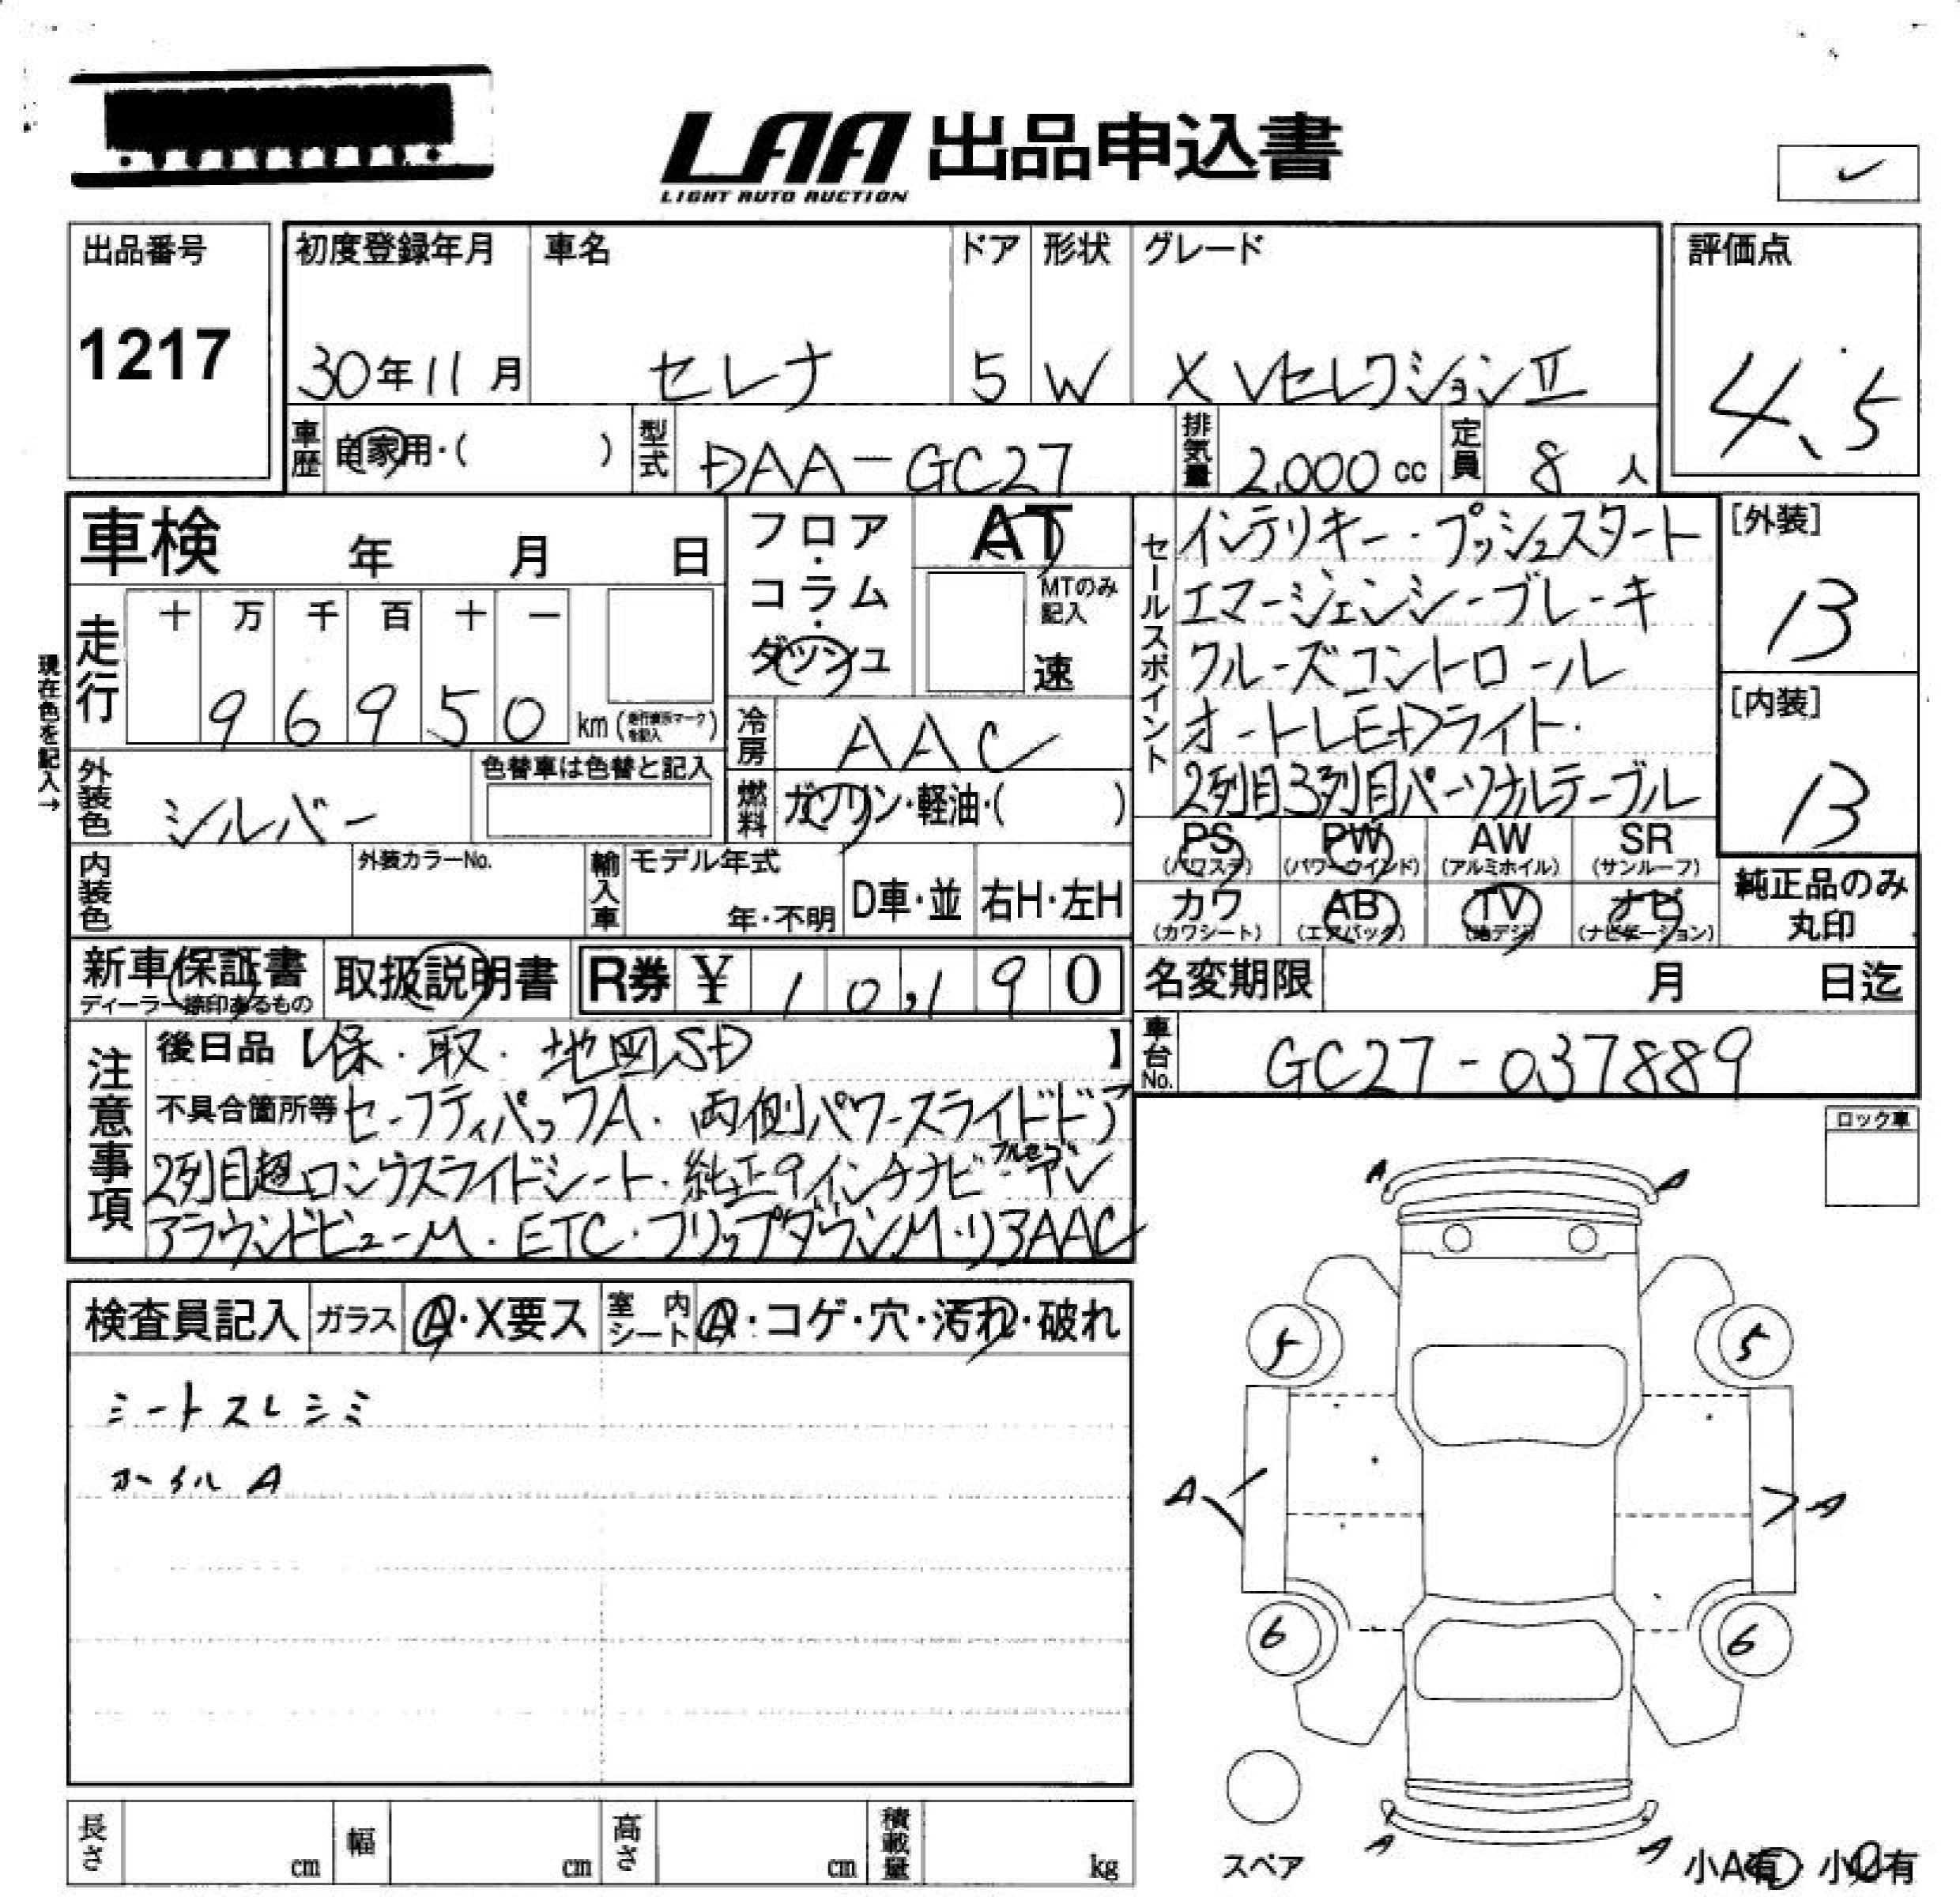 LAA 出品申込書
LIGHT AUTO AUCTION
出品番号
1217
初度登録年月
30年11月
車名
セレナ
ドア
5
形状
W
グレード
X VセレクションⅡ
評価点
4.5
車歴
自家用・( )
型式
DAA-GC27
排気量
2,000 cc
定員
8 人
車検 年 月 日
フロア・コラム・ダッシュ
AT
MTのみ記入
速
現在色を記入→
走行
十 万 千 百 十 一
9 6 9 5 0 km (走行表示マークを記入)
冷房
AAC
外装色
シルバー
色替車は色替と記入
燃料
ガソリン・軽油・( )
内装色
外装カラーNo.
輸入車
モデル年式
年・不明
D車・並
右H・左H
セールスポイント
インテリキー・プッシュスタート
エマージェンシーブレーキ
クルーズコントロール
オートLEDライト・
2列目3列目パーソナルテーブル
[外装]
B
[内装]
B
PS (パワステ)
PW (パワーウインド)
AW (アルミホイル)
SR (サンルーフ)
カワ (カワシート)
AB (エアバック)
TV (地デジ)
ナビ (ナビゲーション)
純正品のみ
丸印
新車保証書
ディーラー捺印あるもの
取扱説明書
R券 ¥ 10,190
名変期限 月 日迄
車台No.
GC27-037889
注意事項
後日品【保・取・地図SD】
不具合箇所等 セーフティパックA・両側パワースライドドア
2列目超ロングスライドシート・純正9インチナビ・フルセグTV
アラウンドビューM・ETC・フリップダウンM・リアAAC
ロック車
検査員記入
ガラス A・X要ス
室内シート A・コゲ・穴・汚れ・破れ
シートスレシミ
ホイルA
A A
5 5
A A
6 6
A A
スペア
小A有 小U有
長さ cm
幅 cm
高さ cm
積載量 kg